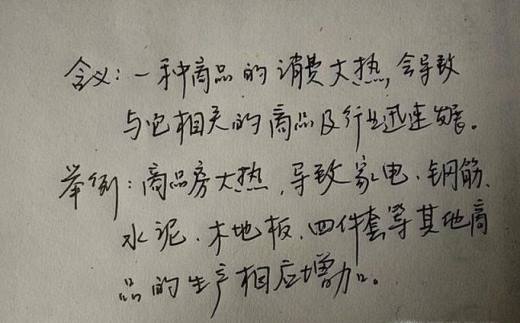 含义：一种商品的消费大热，会导致
与它相关的商品及行业迅速发展。
举例：商品房大热，导致家电、钢筋、
水泥、木地板、四件套等其他商
品的生产相应增加。